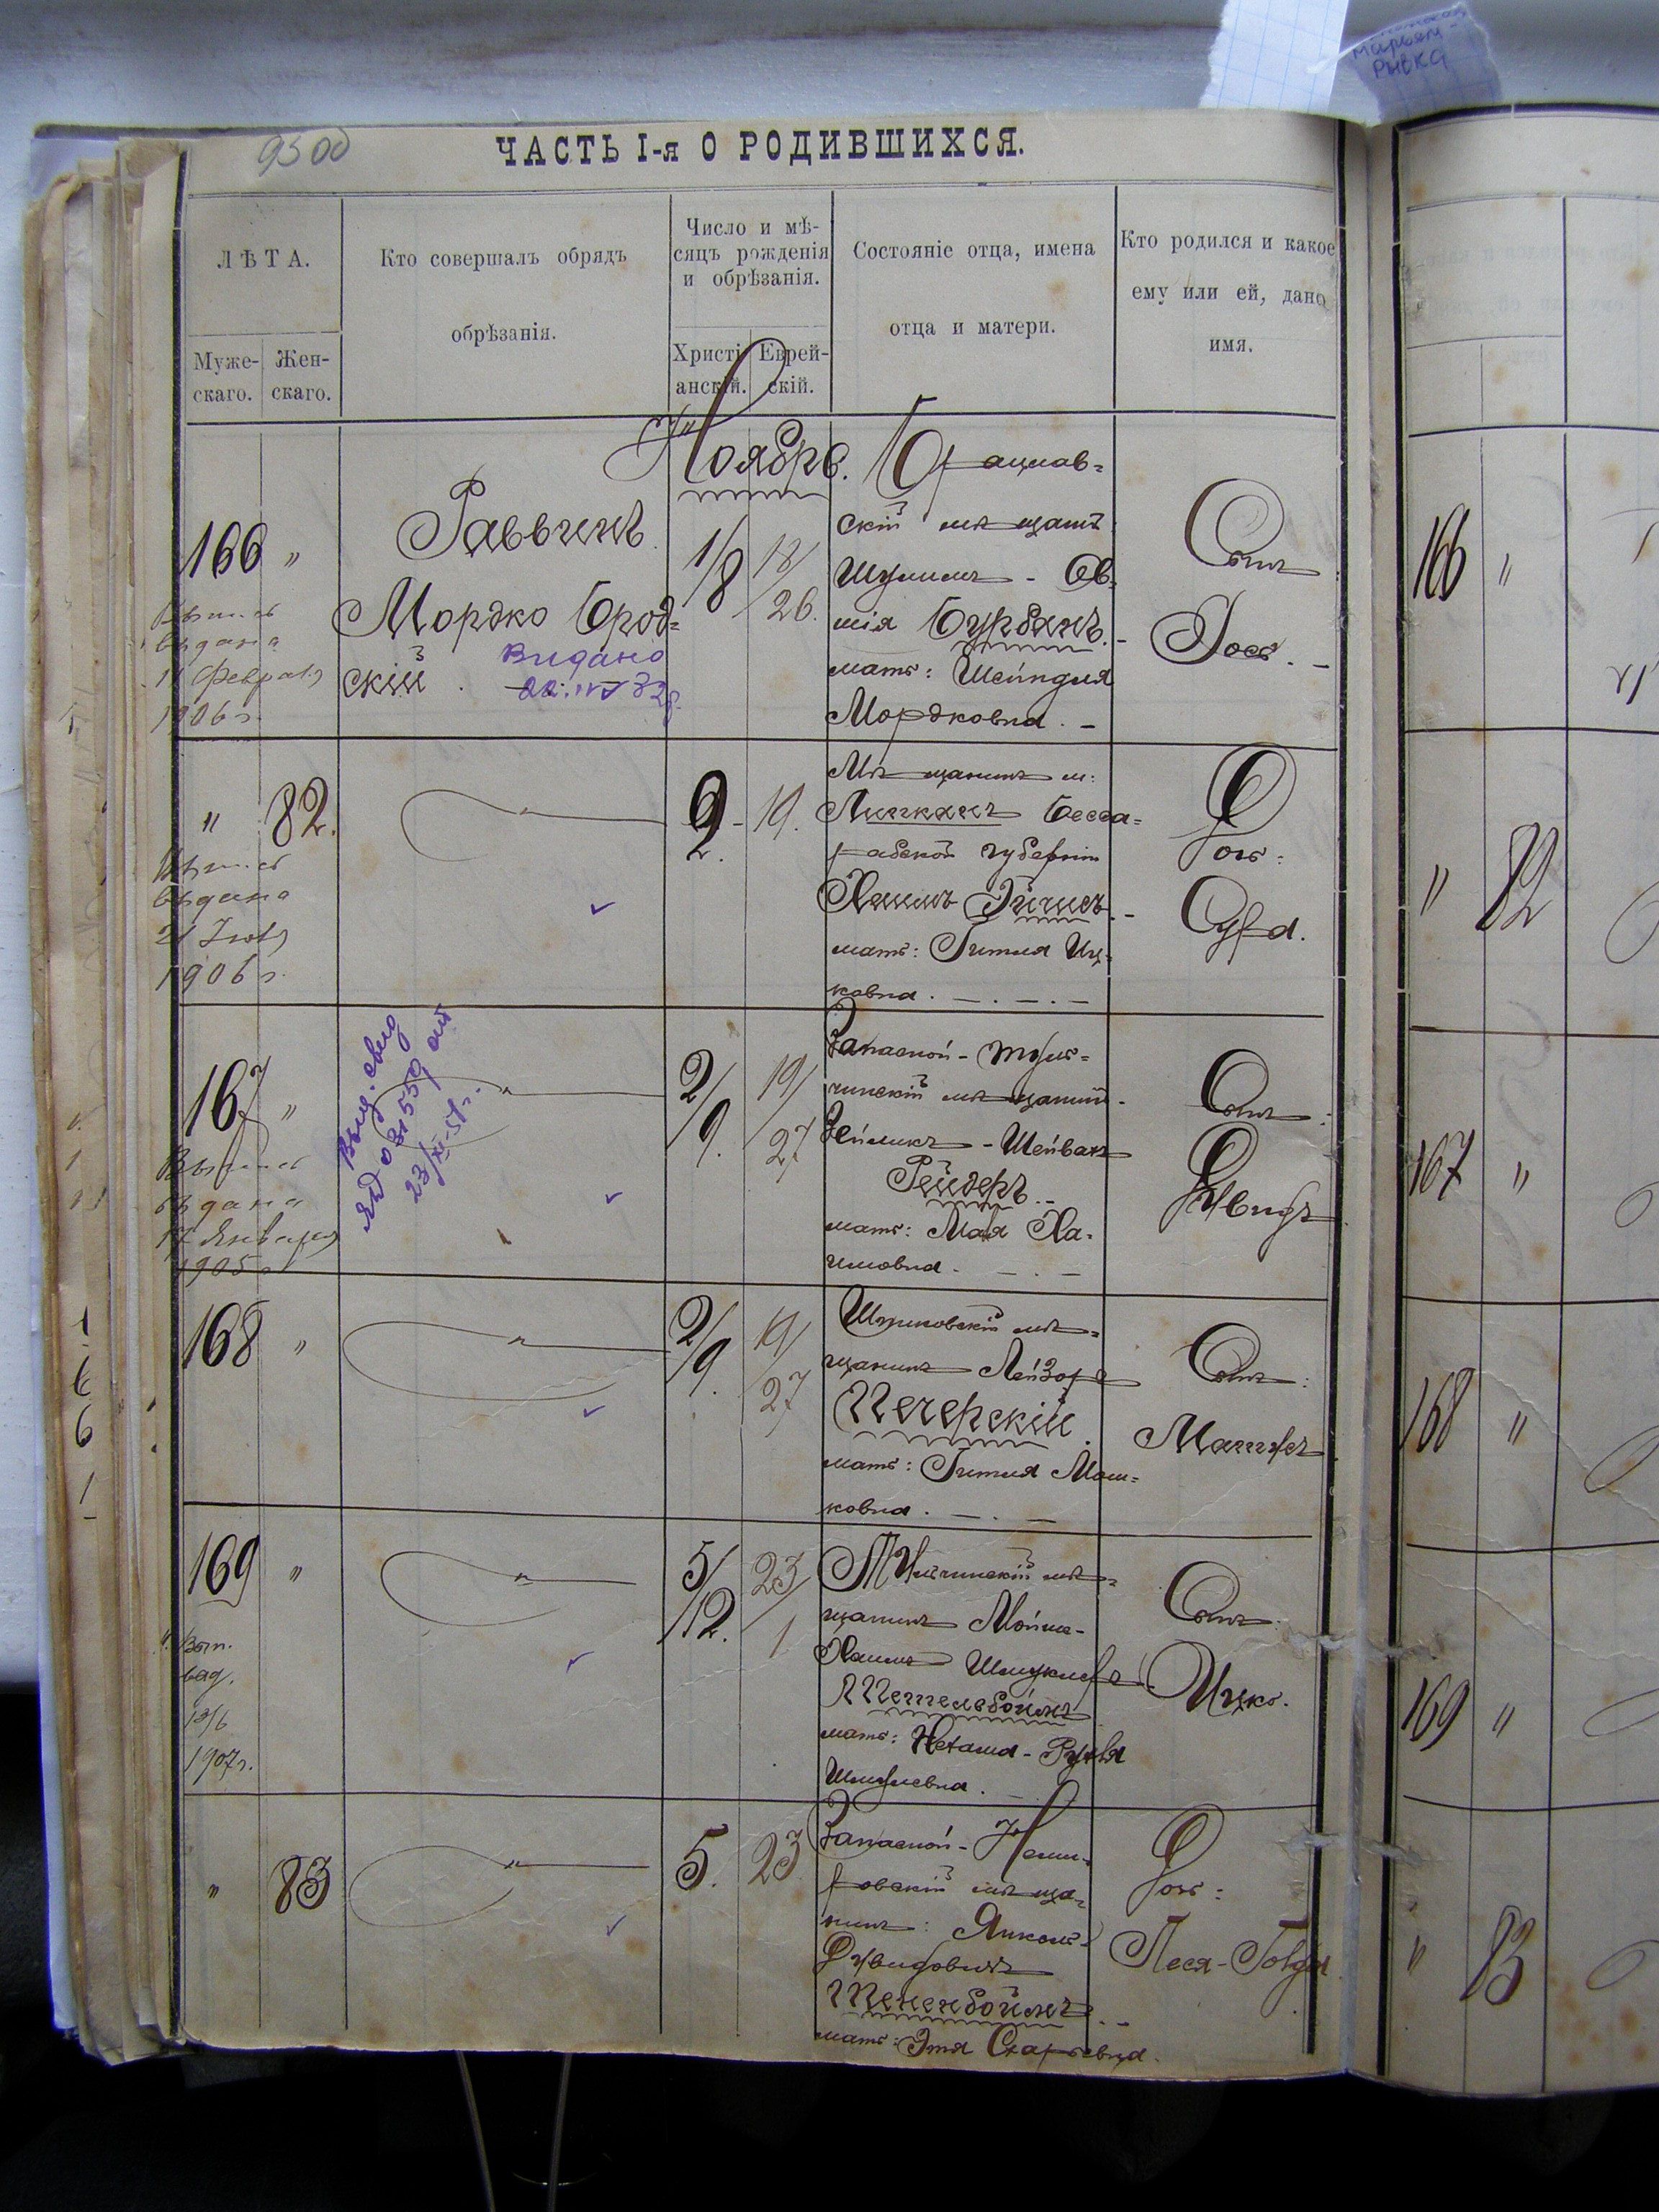 Рывка
9500
ЧАСТЬ I-я О РОДИВШИХСЯ.
ЛѢТА.
Муже-
скаго.
Жен-
скаго.
Кто совершалъ обрядъ
обрѣзанія.
Число и мѣ-
сяцъ рожденія
и обрѣзанія.
Христі-
анскій.
Еврей-
скій.
Состояніе отца, имена
отца и матери.
Кто родился и какое
ему или ей, дано
имя.
Ноябрь.
166 "
выдана
11 Февраля
1906 г.
Раввинъ
Мордко Брод=
скій
Видано
1/8
18/26.
Брацлав=
скій мѣщанинъ
Шулимъ - Ов=
шія Бурбанъ. -
мать: Шейндля
Мордковна. -
Сынъ:
Іось. -
" 82.
выдана
21 Іюля
1906 г.
2.
19.
Мѣщанинъ м:
Липканъ Бесса=
рабской губерніи
Хаимъ
мать: Гитля Иц=
ковна.
Дочь:
Сура.
167 "
выдана
17 Января
1905 г.
Выд. свид
23/XI-51 г.
2/9.
19/27
Запасной - Туль=
чинскій мѣщанинъ
Зейликъ - Шейвахъ
Рейдеръ. -
мать: Мая Ха=
имовна.
Сынъ:
Дувидъ
168 "
2/9.
19/27
мѣ=
щанинъ Лейзоръ
Печерскій.
мать: Гитля Мош=
ковна.
Сынъ:
169 "
Вып.
выд.
13/6
1907 г.
5/12.
23/1
Тульчинскій мѣ=
щанинъ Мойше-
Хаимъ
Тетельбоймъ
мать: Нехама - Рухля
Шмулевна.
Сынъ:
Ицко.
" 83
5.
23
Запасной - Неми=
ровскій мѣща=
нинъ: Янкель-
Дувидовичъ
Тененбоймъ. -
мать: Этя
Дочь:
Песя - Голда
166 "
" 82
167 "
168 "
169 "
" 83